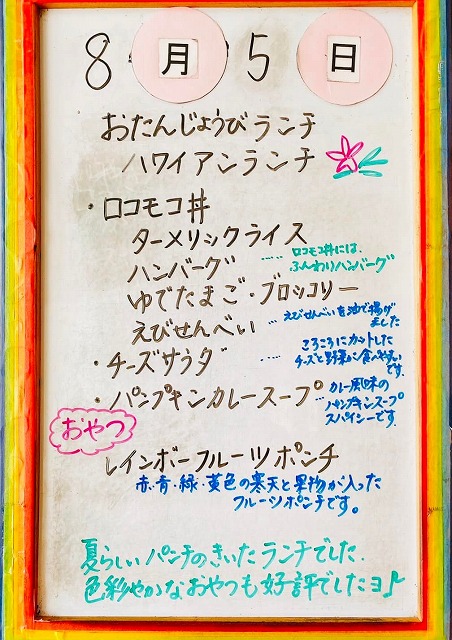 8月5日
おたんじょうびランチ
ハワイアンランチ
・ロコモコ丼
ターメリックライス
ハンバーグ ‥‥ロコモコ丼には、
ふんわりハンバーグ
ゆでたまご・ブロッコリー
えびせんべい ‥‥えびせんべいを油で揚げ
ました
・チーズサラダ ‥‥ころころにカットした
チーズと野菜が食べやすい
です。
・パンプキンカレースープ ‥‥カレー風味の
パンプキンスープ
スパイシーです。
おやつ
レインボーフルーツポンチ
赤・青・緑・黄色の寒天と果物が入った
フルーツポンチです。
夏らしいパンチのきいたランチでした。
色彩やかなおやつも好評でしたヨ♪